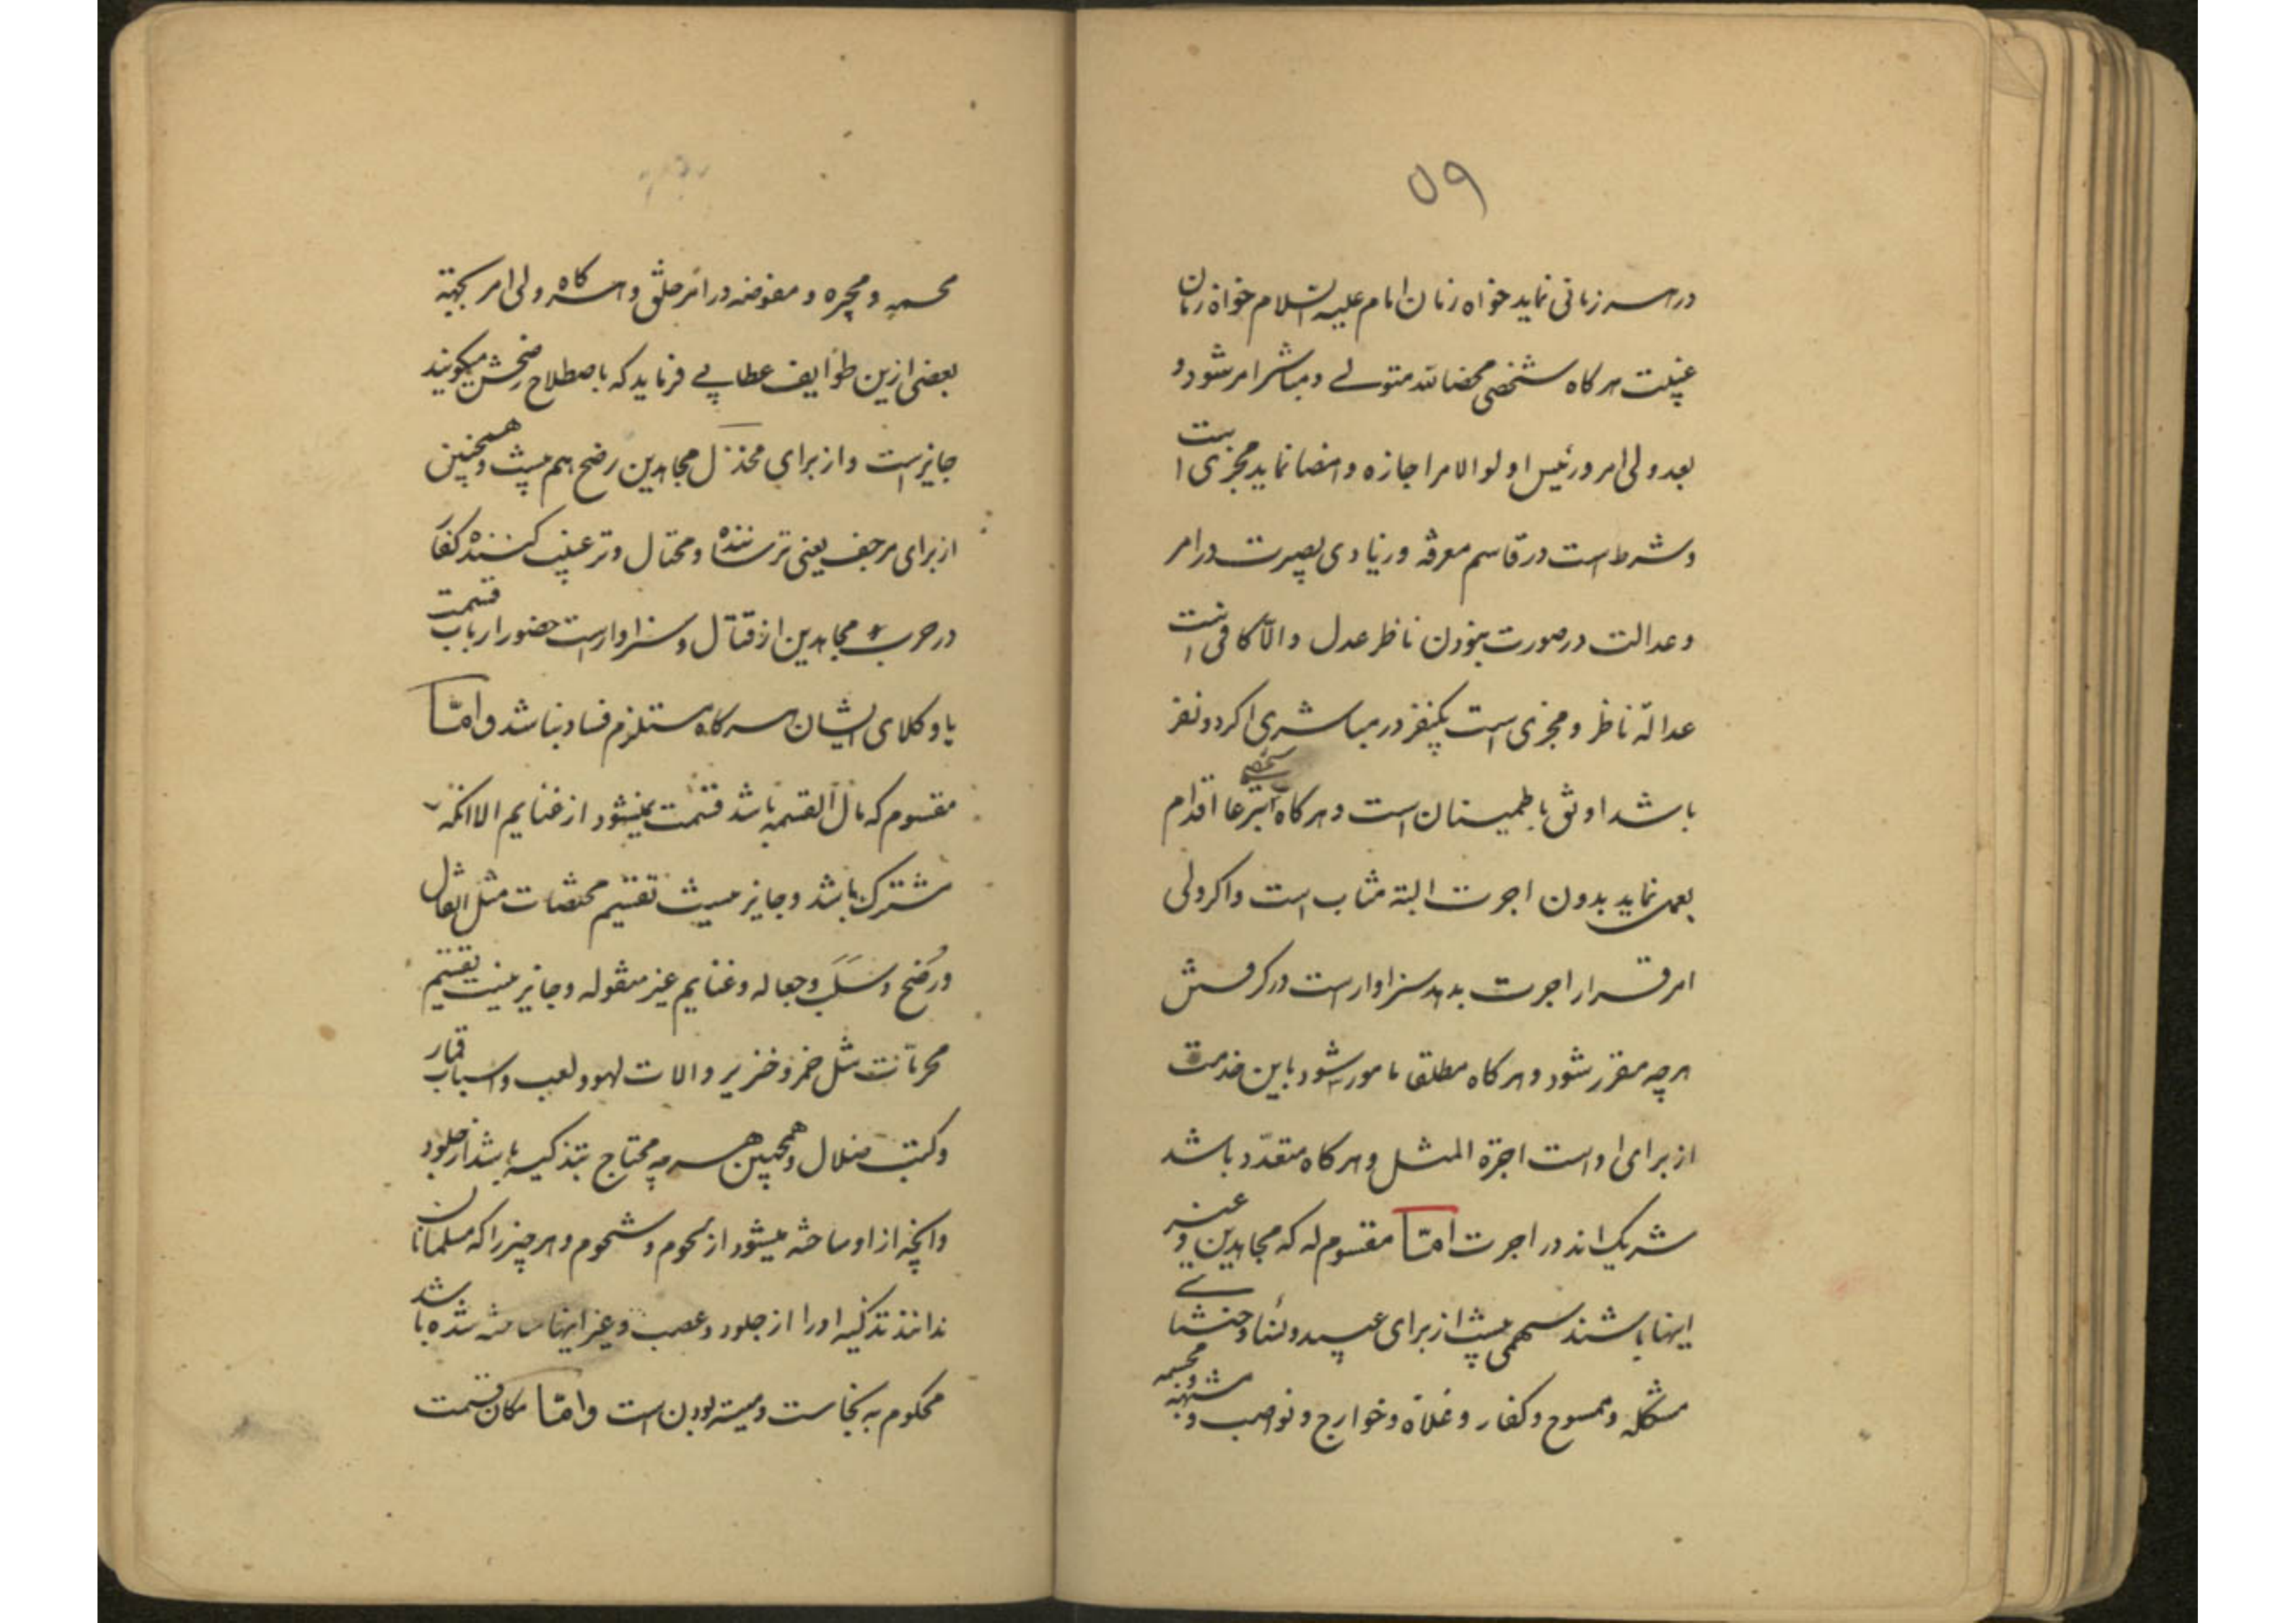 ۵۹
در هر زمانی نماید خواه زمان امام علیه السلام خواه زمان
غیبت هر کاه شخصی محضا لله متولے و مباشر امر شود و
بعد ولی امر و رئیس اولوالامر اجازه و امضا نماید مجزی است
و شرط است در قاسم معرفه و زیادی بصیرت در امر
و عدالت در صورت نبودن ناظر عدل و الّا کافی است
عدالة ناظر و مجزی است یکنفر در مباشری اکر دو نفر
باشد اوثق باطمینان است و هر کاه شخصے تبرعا اقدام
بعمل نماید بدون اجرت البته مثاب است و اکر ولی
امر قرار اجرت بدهد سزاوار است در کرفتنش
هر چه مقرر شود و هر کاه مطلقا مامور شود باین خدمت
از برای او است اجرة المثل و هر کاه متعدّد باشد
شریک اند در اجرت امّا مقسوم له که مجاهدین و غیر
اینها باشند سهمی نیست از برای عبید و نساء و خنثاے
مشکله و ممسوح و کفار و غلاة و خوارج و نواصب و مشبهه و مجسمه
و مجبره و مفوضه در امر خلق و هر کاه ولی امر بجهة
بعضی ازین طوایف عطایے فرماید که باصطلاح رضخش میکویند
جایز است و از برای مخذل مجاهدین رضخ هم نیست و همچنین
از برای مرجف یعنی ترساننده و محتال و ترغیب کننده کفار
در حرب مجاهدین از قتال و سزاوار است حضور ارباب قسمت
یا وکلای ایشان هر کاه مستلزم فساد نباشد و امّا
مقسوم که مال القسمه باشد قسمت نمیشود از غنایم الا انکه
مشترک باشد و جایز نیست تقسیم مختصات مثل انفال
و رضخ و سلب و جعاله و غنایم غیر منقوله و جایز نیست تقسیم
محرمات مثل خمر و خنزیر و الات لهو و لعب و اسباب قمار
و کتب ضلال و همچنین هر چه محتاج بتذکیه باشد از جلود
و انچه از او ساخته میشود از لحوم و شحوم و هر چیز را که مسلمانان
ندانند تذکیه او را از جلود و عصب و غیر اینها ساخته شده باشد
محکوم به نجاست و میته بودن است و امّا مکان قسمت